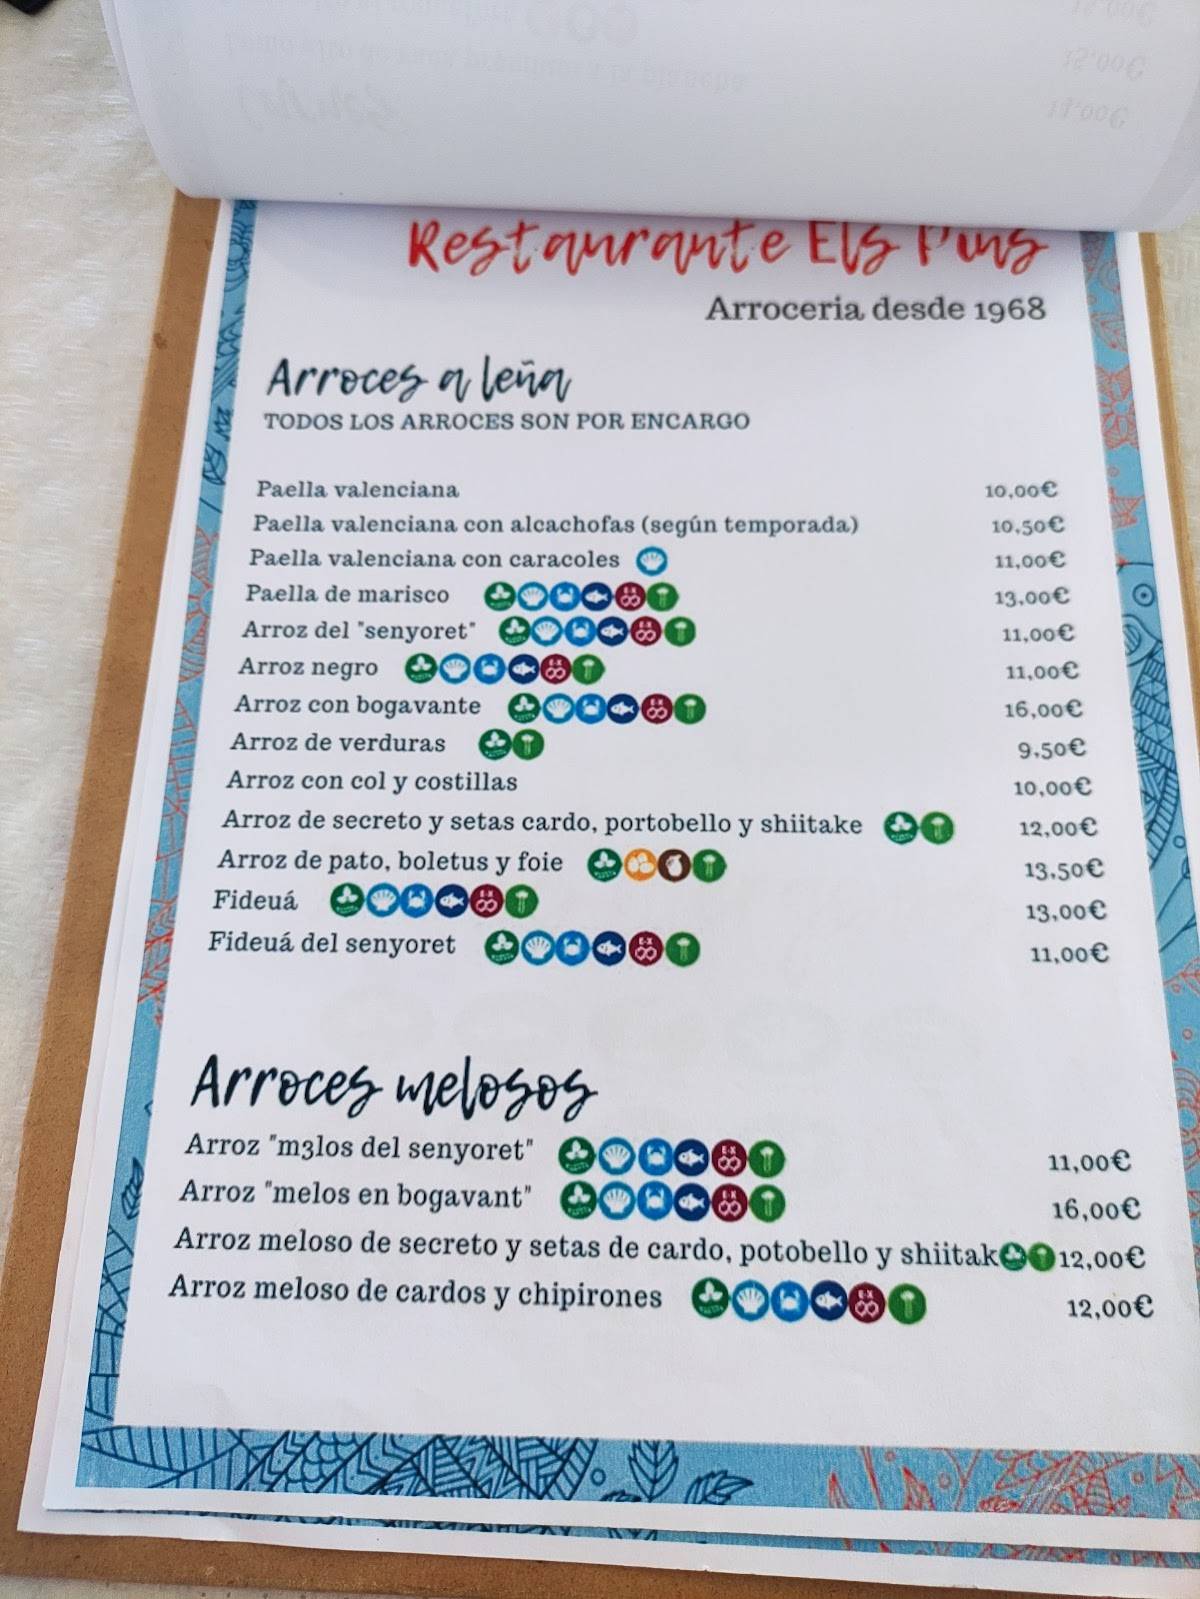 Restaurante Els Pins
Arroceria desde 1968
Arroces a leña
TODOS LOS ARROCES SON POR ENCARGO
Paella valenciana 10,00€
Paella valenciana con alcachofas (según temporada) 10,50€
Paella valenciana con caracoles 11,00€
Paella de marisco 13,00€
Arroz del "senyoret" 11,00€
Arroz negro 11,00€
Arroz con bogavante 16,00€
Arroz de verduras 9,50€
Arroz con col y costillas 10,00€
Arroz de secreto y setas cardo, portobello y shiitake 12,00€
Arroz de pato, boletus y foie 13,50€
Fideuá 13,00€
Fideuá del senyoret 11,00€
Arroces melosos
Arroz "m3los del senyoret" 11,00€
Arroz "melos en bogavant" 16,00€
Arroz meloso de secreto y setas de cardo, potobello y shiitak 12,00€
Arroz meloso de cardos y chipirones 12,00€